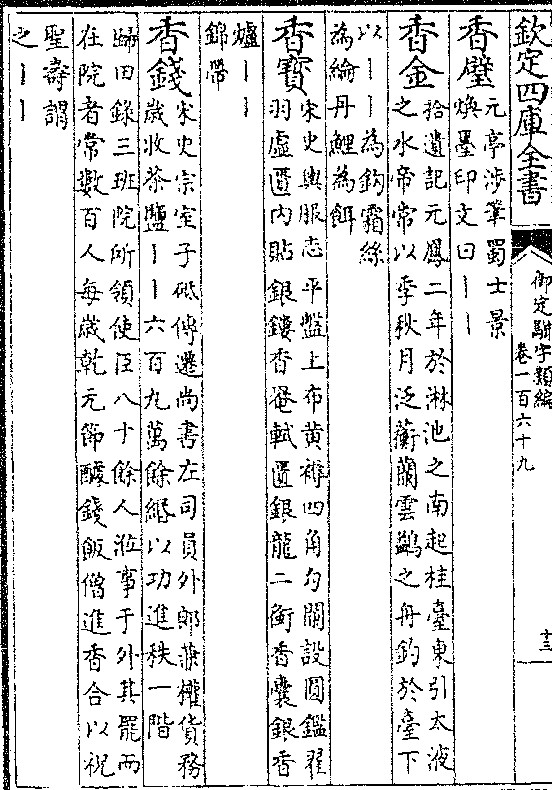 欽定四庫全書
御定駢字類編
卷一百六十九
十三
香璧
元亭渉筆蜀士景
煥墨印文曰丨丨
香金
拾遺記元鳳二年於淋池之南起桂臺東引太液
之水帝常以季秋月泛蘅蘭雲鷁之舟釣於臺下
以丨丨為鈎霜絲
為綸丹鯉為餌
香寶
宋史輿服志平盤上布黄褥四角勾闌設圓鑑翟
羽虛匱内貼銀鏤香罨軾匱銀龍二銜香囊銀香
爐丨丨
錦帶
香錢
宋史宗室子砥傳遷尚書左司員外郎兼權貨務
歲收茶鹽丨丨六百九萬餘緡以功進秩一階
歸田錄三班院所領使臣八十餘人涖事于外其罷而
在院者常數百人每歲乾元節醵錢飯僧進香合以祝
聖壽謂
之丨丨